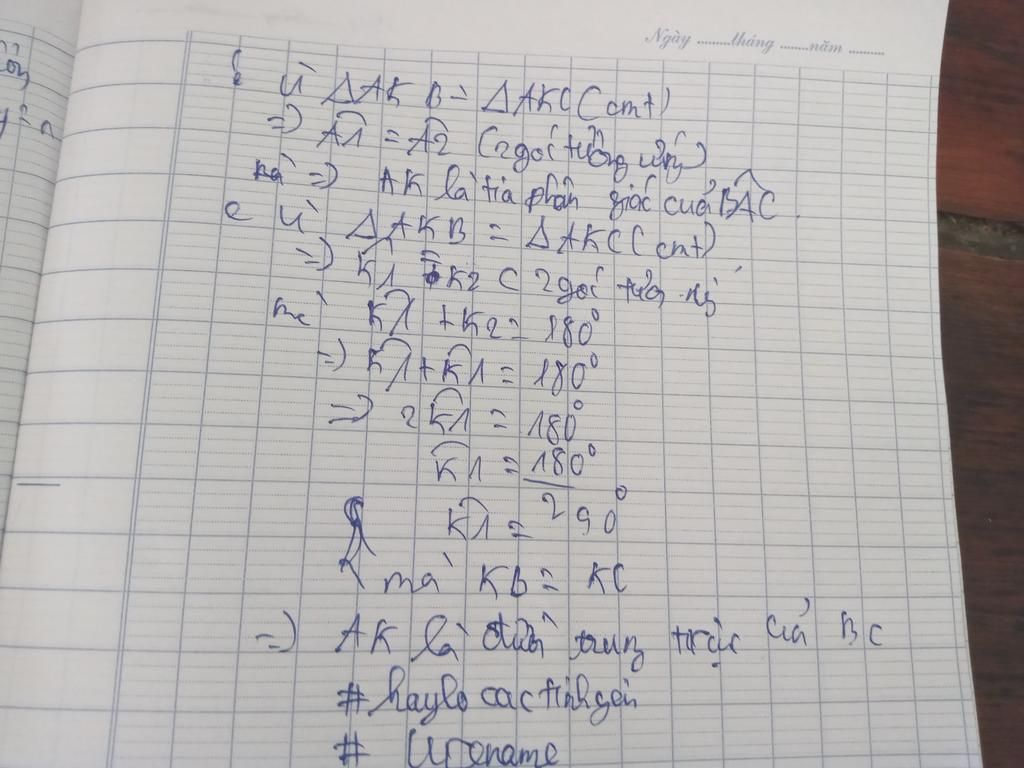 Ngày .........tháng .......năm .........
b Vì ΔAKB = ΔAKC (cmt)
=> A1 = A2 (2 góc tương ứng)
=> AK là tia phân giác của BAC
c Vì ΔAKB = ΔAKC (cmt)
=> K1 = K2 ( 2 góc tương
mà K1 + K2 = 180°
=> K1 + K1 = 180°
=> 2K1 = 180°
K1 = 180°
2
K1 = 90°
mà KB = KC
=> AK là trung trực của BC
#
#